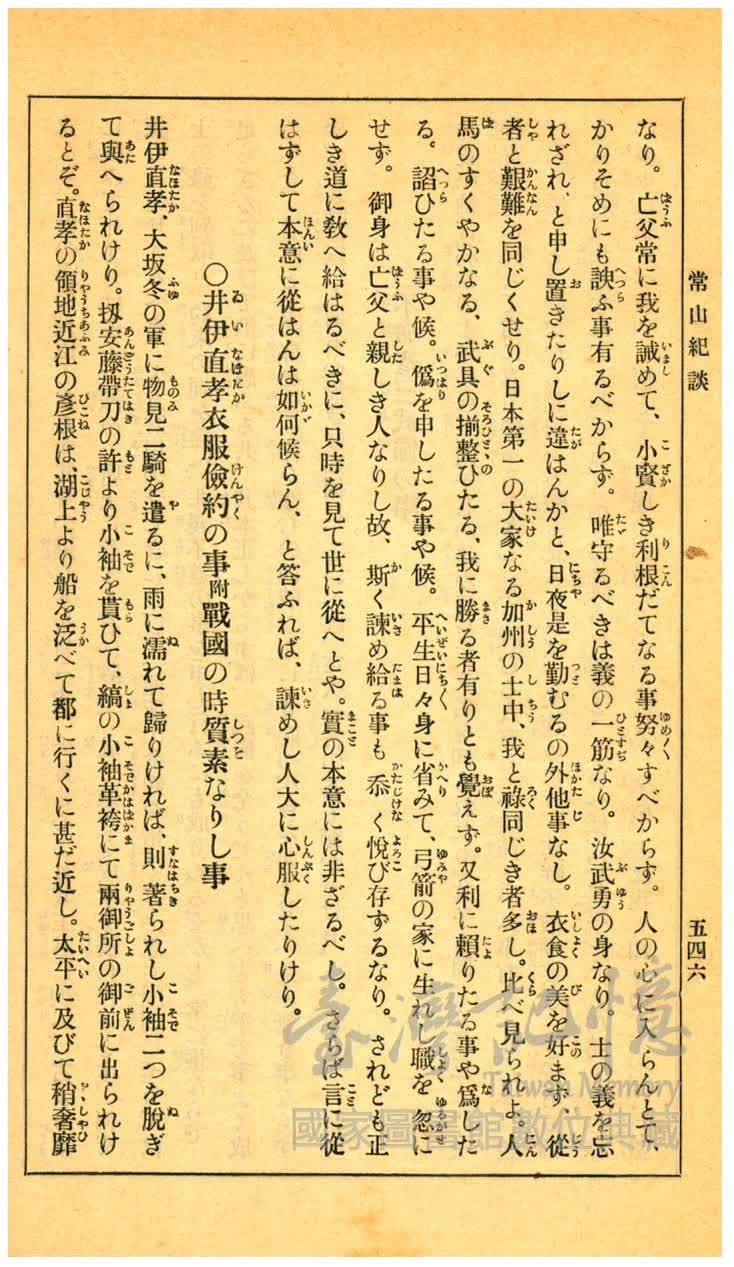 常山紀談
五四六
なり。亡父常に我を誡めて、小賢しき利根だてなる事努々すべからず。人の心に入らんとて、
かりそめにも諛ふ事有るべからず。唯守るべきは義の一筋なり。汝武勇の身なり。士の義を忘
れざれ、と申し置きたりしに違はんかと、日夜是を勤むるの外他事なし。衣食の美を好まず、從
者と艱難を同じくせり。日本第一の大家なる加州の士中、我と祿同じき者多し。比べ見られよ。人
馬のすくやかなる、武具の揃整ひたる、我に勝る者有りとも覺えず。又利に賴りたる事や爲した
る。謟ひたる事や候。僞を申したる事や候。平生日々身に省みて、弓箭の家に生れし職を忽に
せず。御身は亡父と親しき人なりし故、斯く諫め給る事も忝く悅び存ずるなり。されども正
しき道に敎へ給はるべきに、只時を見て世に從へとや。實の本意には非ざるべし。さらば言に從
はずして本意に從はんは如何候らん、と答ふれば、諫めし人大に心服したりけり。
○井伊直孝衣服儉約の事附戰國の時質素なりし事
井伊直孝、大坂冬の軍に物見二騎を遣るに、雨に濡れて歸りければ、則著られし小袖二つを脫ぎ
て與へられけり。扨安藤帶刀の許より小袖を貰ひて、縞の小袖革袴にて兩御所の御前に出られけ
るとぞ。直孝の領地近江の彥根は、湖上より船を泛べて都に行くに甚だ近し。太平に及びて稍奢靡
臺灣記憶
Taiwan Memory
國家圖書館數位典藏